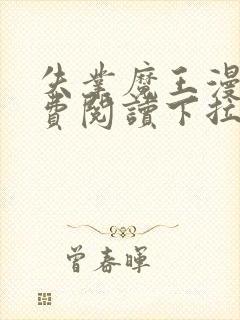 失業魔王漫
費閱讀下拉
曾春暉